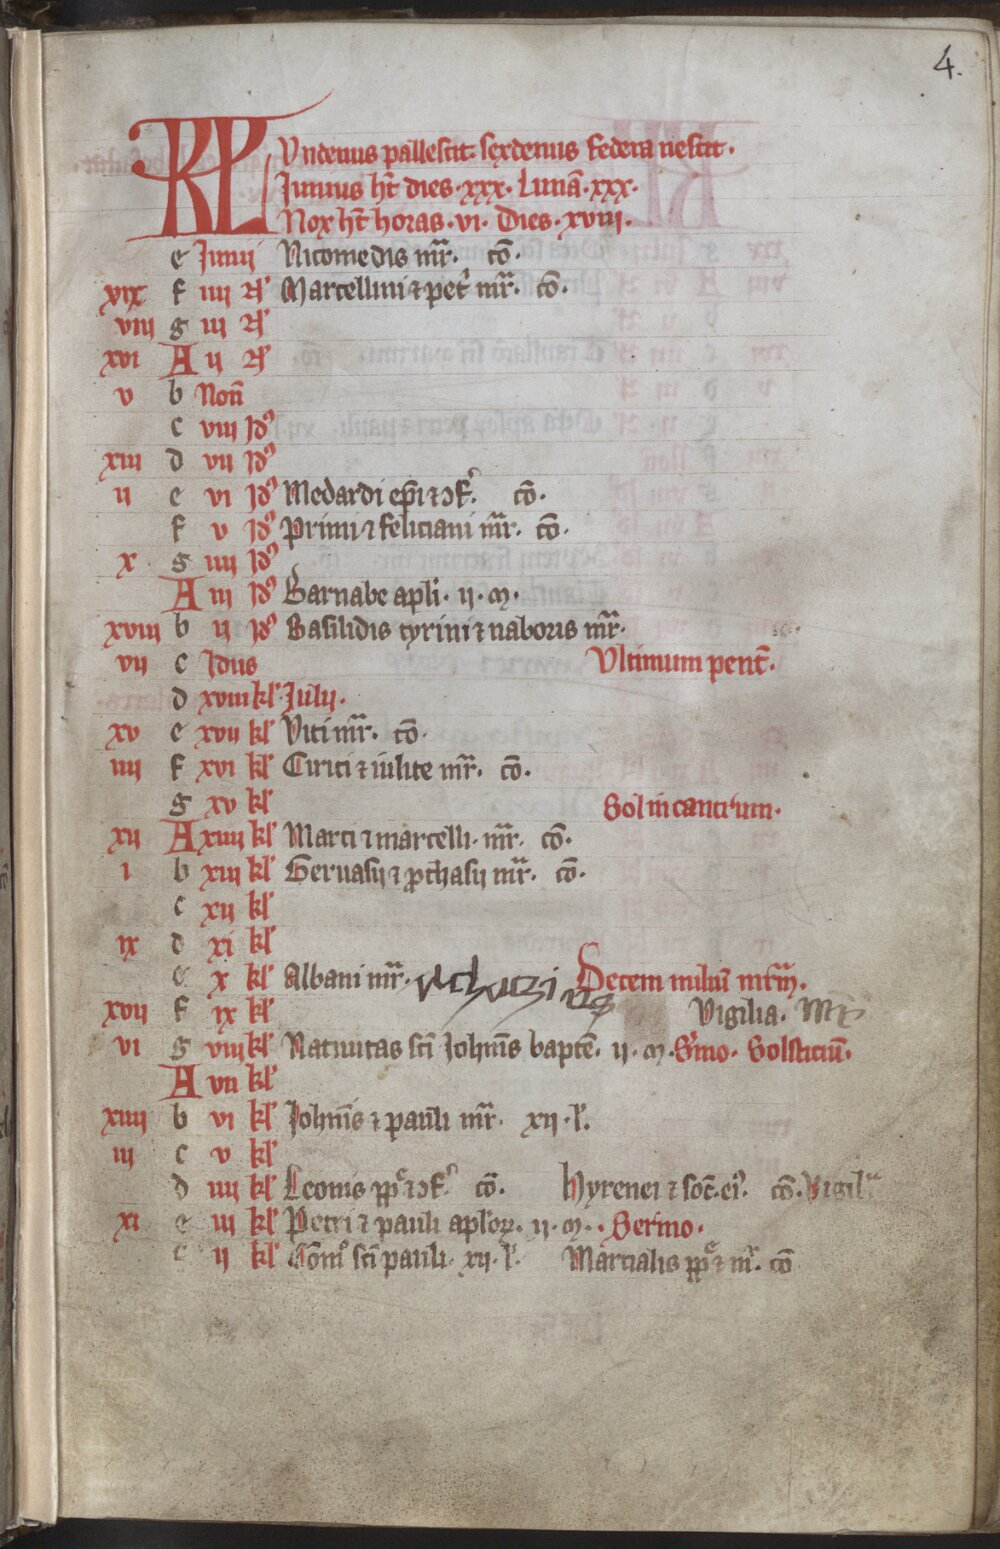 4.
KL Undenus pallescit· sexdenus federa nescit·
Junius ħt dies·xxx· Lunā·xxx·
Nox ħt horas·vi· Dies·xviii·
e Junii Nicomedis mr̄· cō·
xix f iiii N̄ Marcellini ⁊ pet' mr̄· cō·
viii g iii N̄
xvi A ii N̄
v b Non̄
c viii Jd'
xiii d vii Jd'
ii e vi Jd' Medardi ep̄i ⁊ ↄf'· cō·
f v Jd' Primi ⁊ feliciani mr̄· cō·
x g iiii Jd'
A iii Jd' Barnabe apl̄i· ii· m·
xviii b ii Jd' Basilidis cyrini ⁊ naboris mr̄·
vii c Jdus Ultimum pent̄·
d xviii kl' Julii·
xv e xvii kl' Viti mr̄· cō·
iiii f xvi kl' Cirici ⁊ iulite mr̄· cō·
g xv kl' Sol in cancrum·
xii A xiiii kl' Marci ⁊ marcelli· mr̄· cō·
i b xiii kl' Geruasii ⁊ ꝓthasii mr̄· cō·
c xii kl'
ix d xi kl'
e x kl' Albani mr̄· Decem miliū mr̄m·
xvii f ix kl' Vigilia·
vi g viii kl' Natiuitas sc̄i Johīs bapt̄e· ii· m· S'mo· Solsticiū·
A vii kl'
xiiii b vi kl' Johīs ⁊ pauli mr̄· xii·l'·
iii c v kl'
d iiii kl' Leonis pp̄e ⁊ ↄf' cō· Hyrenei ⁊ soc̄·ei'· cō· Vigil'
xi e iii kl' Petri ⁊ pauli apl'oꝝ· ii· m· Sermo·
f ii kl' Cōm̄o sc̄i pauli· xii·l'· Marcialis pp̄e ⁊ m̄r· cō